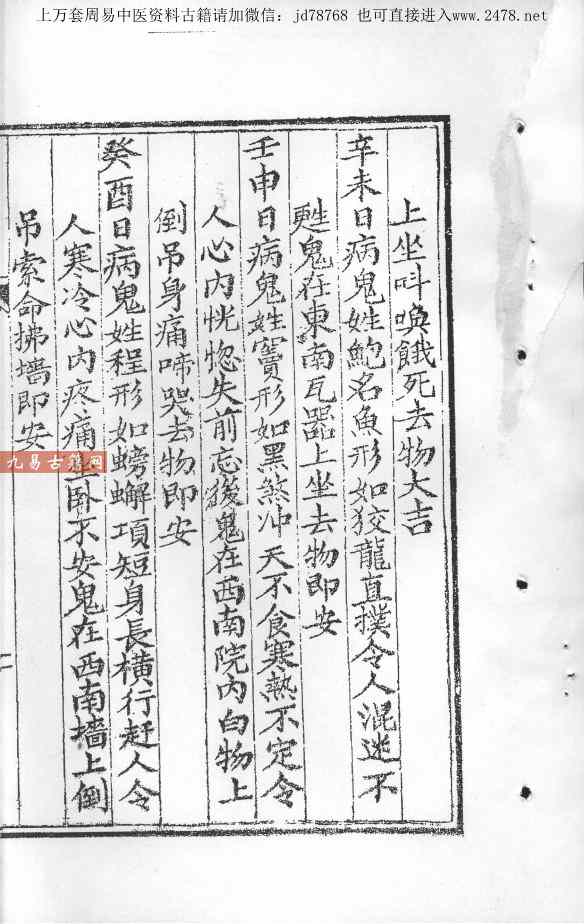 上万套周易中医资料古籍请加微信：jd78768 也可直接进入www.2478.net
上坐呌喚餓死去物大吉
辛未日病鬼姓鮑名魚形如狡龍直撲令人混迷不
甦鬼在東南瓦器上坐去物即安
壬申日病鬼姓竇形如黑煞冲天不食寒熱不定令
人心內恍惚失前忘後鬼在西南院內白物上
倒吊身痛啼哭去物即安
癸酉日病鬼姓程形如螃蠏項短身長橫行赶人令
人寒冷心內疼痛坐卧不安鬼在西南墻上倒
吊索命拂墻即安
九易古籍网